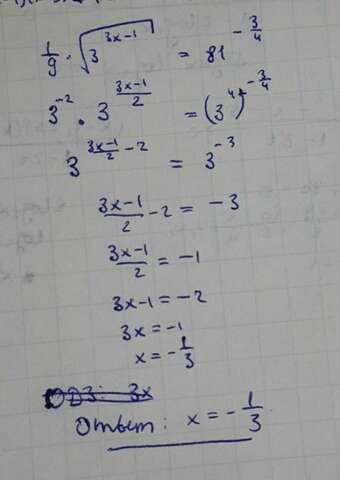 1/9 · √(3^(3x-1)) = 81^(-3/4)
3^(-2) · 3^((3x-1)/2) = (3^4)^(-3/4)
3^((3x-1)/2 - 2) = 3^(-3)
(3x-1)/2 - 2 = -3
(3x-1)/2 = -1
3x-1 = -2
3x = -1
x = -1/3
ОДЗ: 3x
Ответ: x = -1/3